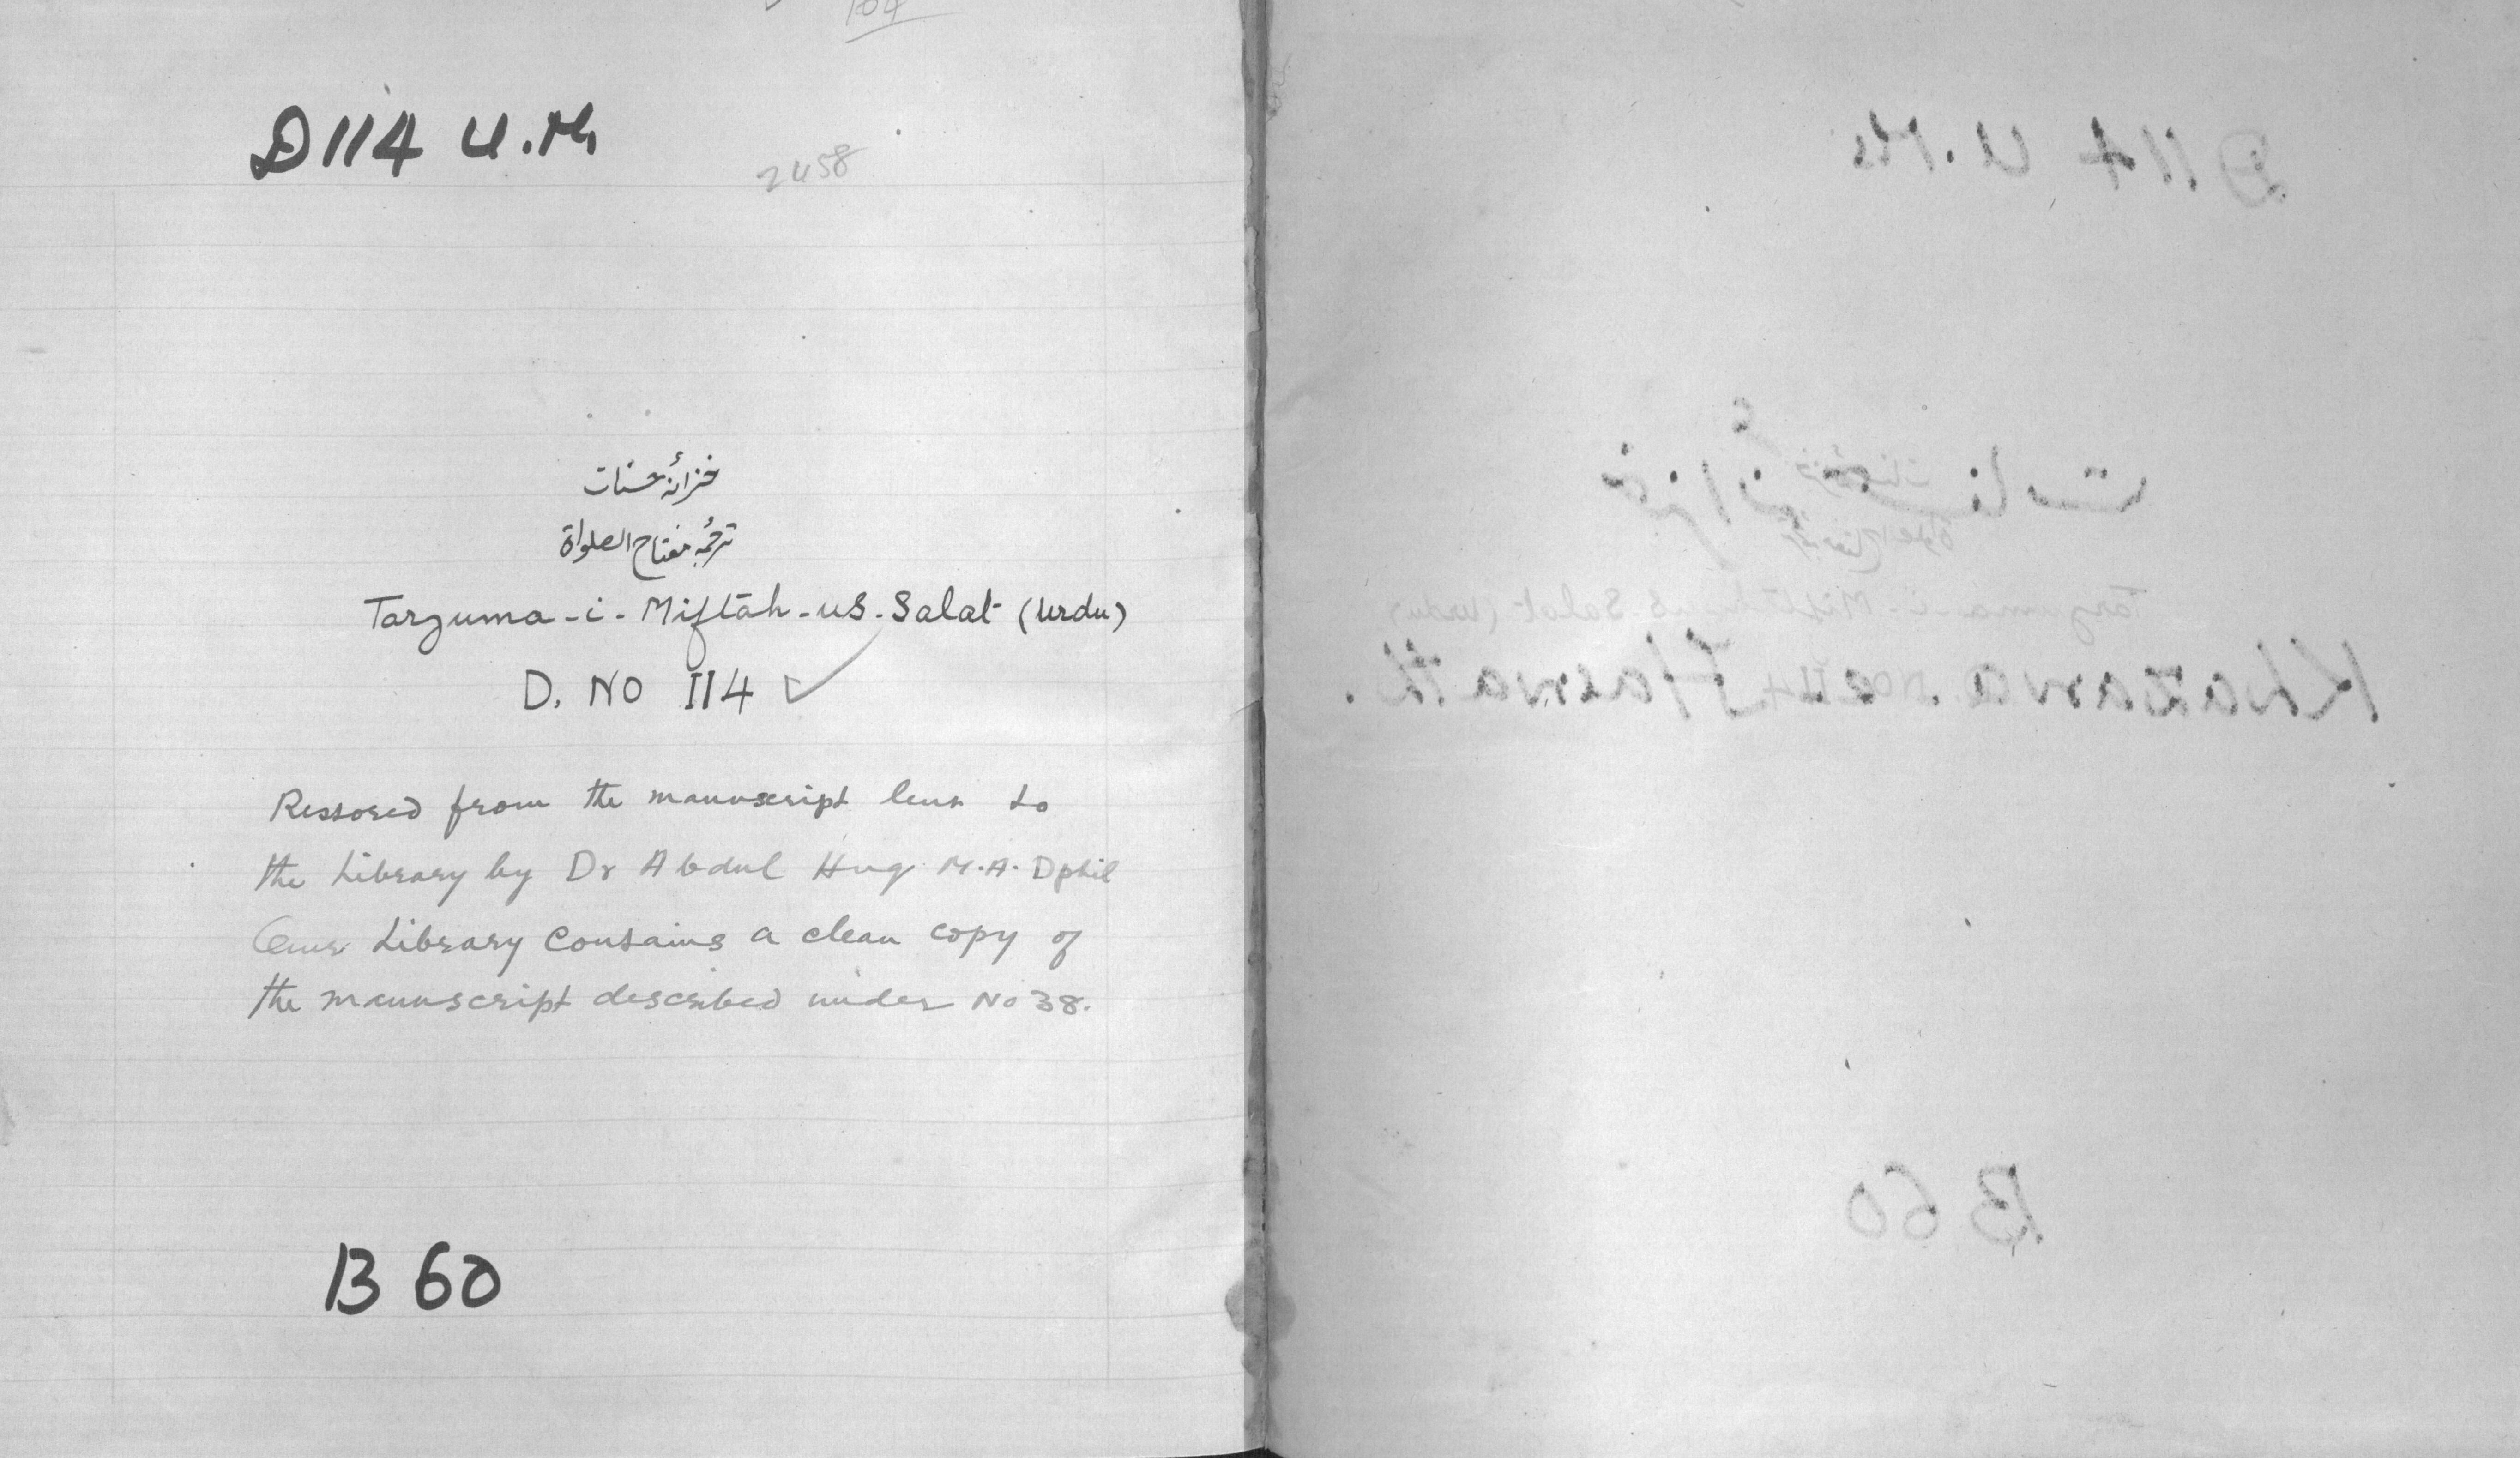 104
D 114 U.M
2458
خزانۂ حسنات
ترجمۂ مفتاح الصلواة
Tarjuma-i-Miftāh-us-Salat (Urdu)
D. NO 114
Restored from the manuscript lent to
the Library by Dr Abdul Huq M.A. Dphil
Our Library Contains a clean copy of
the manuscript described under No 38.
B 60
D 114 U.M
خزانۂ حسنات
Khazana.e.Hasnath.
B 60